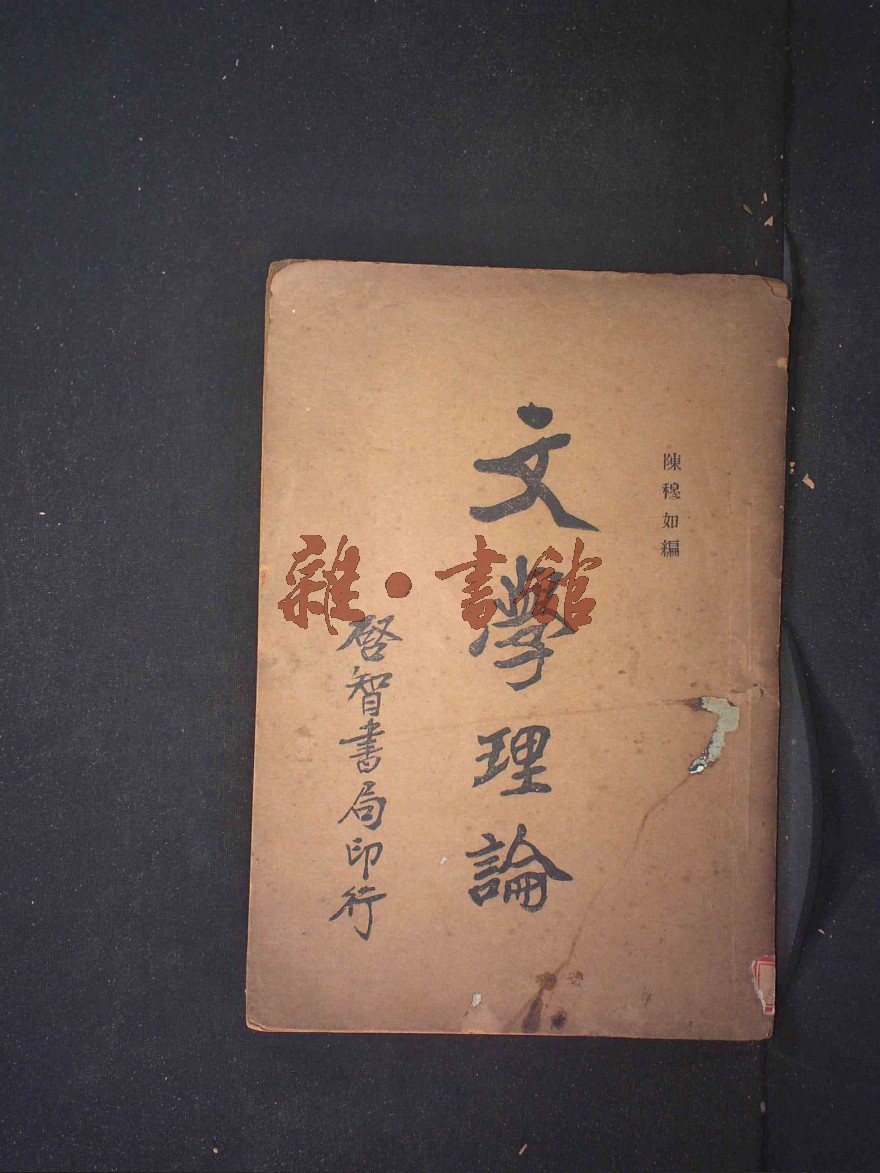 陳穆如編
文學理論
啓智書局印行
雜·書館